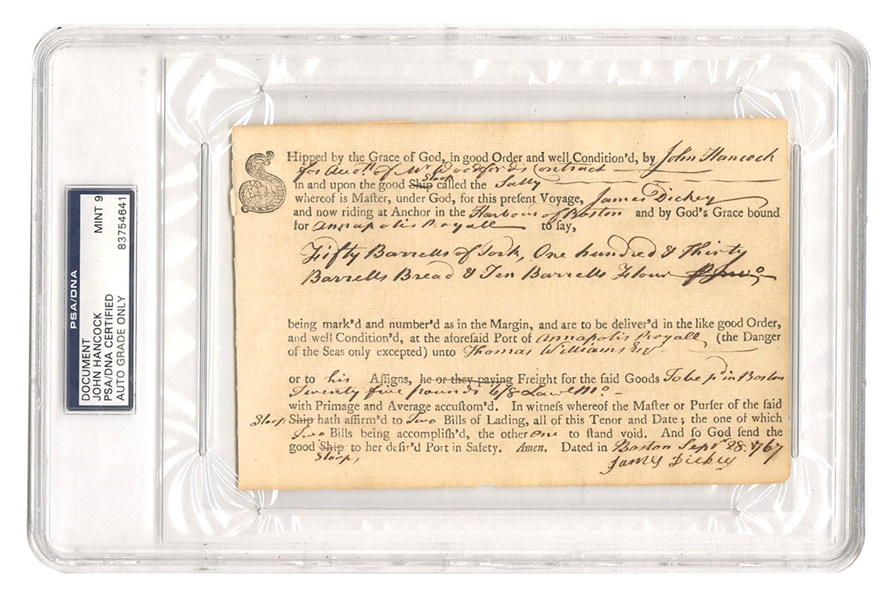 PSA/DNA
DOCUMENT
JOHN HANCOCK
PSA/DNA CERTIFIED
AUTO GRADE ONLY
MINT 9
83754641
SHipped by the Grace of God, in good Order and well Condition'd, by John Hancock
for Accott. of Mr Woodfords Contract
Sloop
in and upon the good Ship called the Sally
whereof is Master, under God, for this present Voyage, James Dickey
and now riding at Anchor in the Harbour of Boston and by God's Grace bound
for Annapolis Royall to say,
Fifty Barrells of Pork, One hundred & Thirty
Barrells Bread & Ten Barrells Flour
being mark'd and number'd as in the Margin, and are to be deliver'd in the like good Order,
and well Condition'd, at the aforesaid Port of Annapolis Royall (the Danger
of the Seas only excepted) unto Thomas Williams Esqr
or to his Assigns, he or they paying Freight for the said Goods To be pd in Boston
Twenty five pounds 6/8 Lawl Mo.
with Primage and Average accustom'd. In witness whereof the Master or Purser of the said
Sloop Ship hath affirm'd to Two Bills of Lading, all of this Tenor and Date; the one of which
Two Bills being accomplish'd, the other one to stand void. And so God send the
good Ship to her desir'd Port in Safety. Amen. Dated in Boston Sept. 28. 1767
Sloop, James Dickey